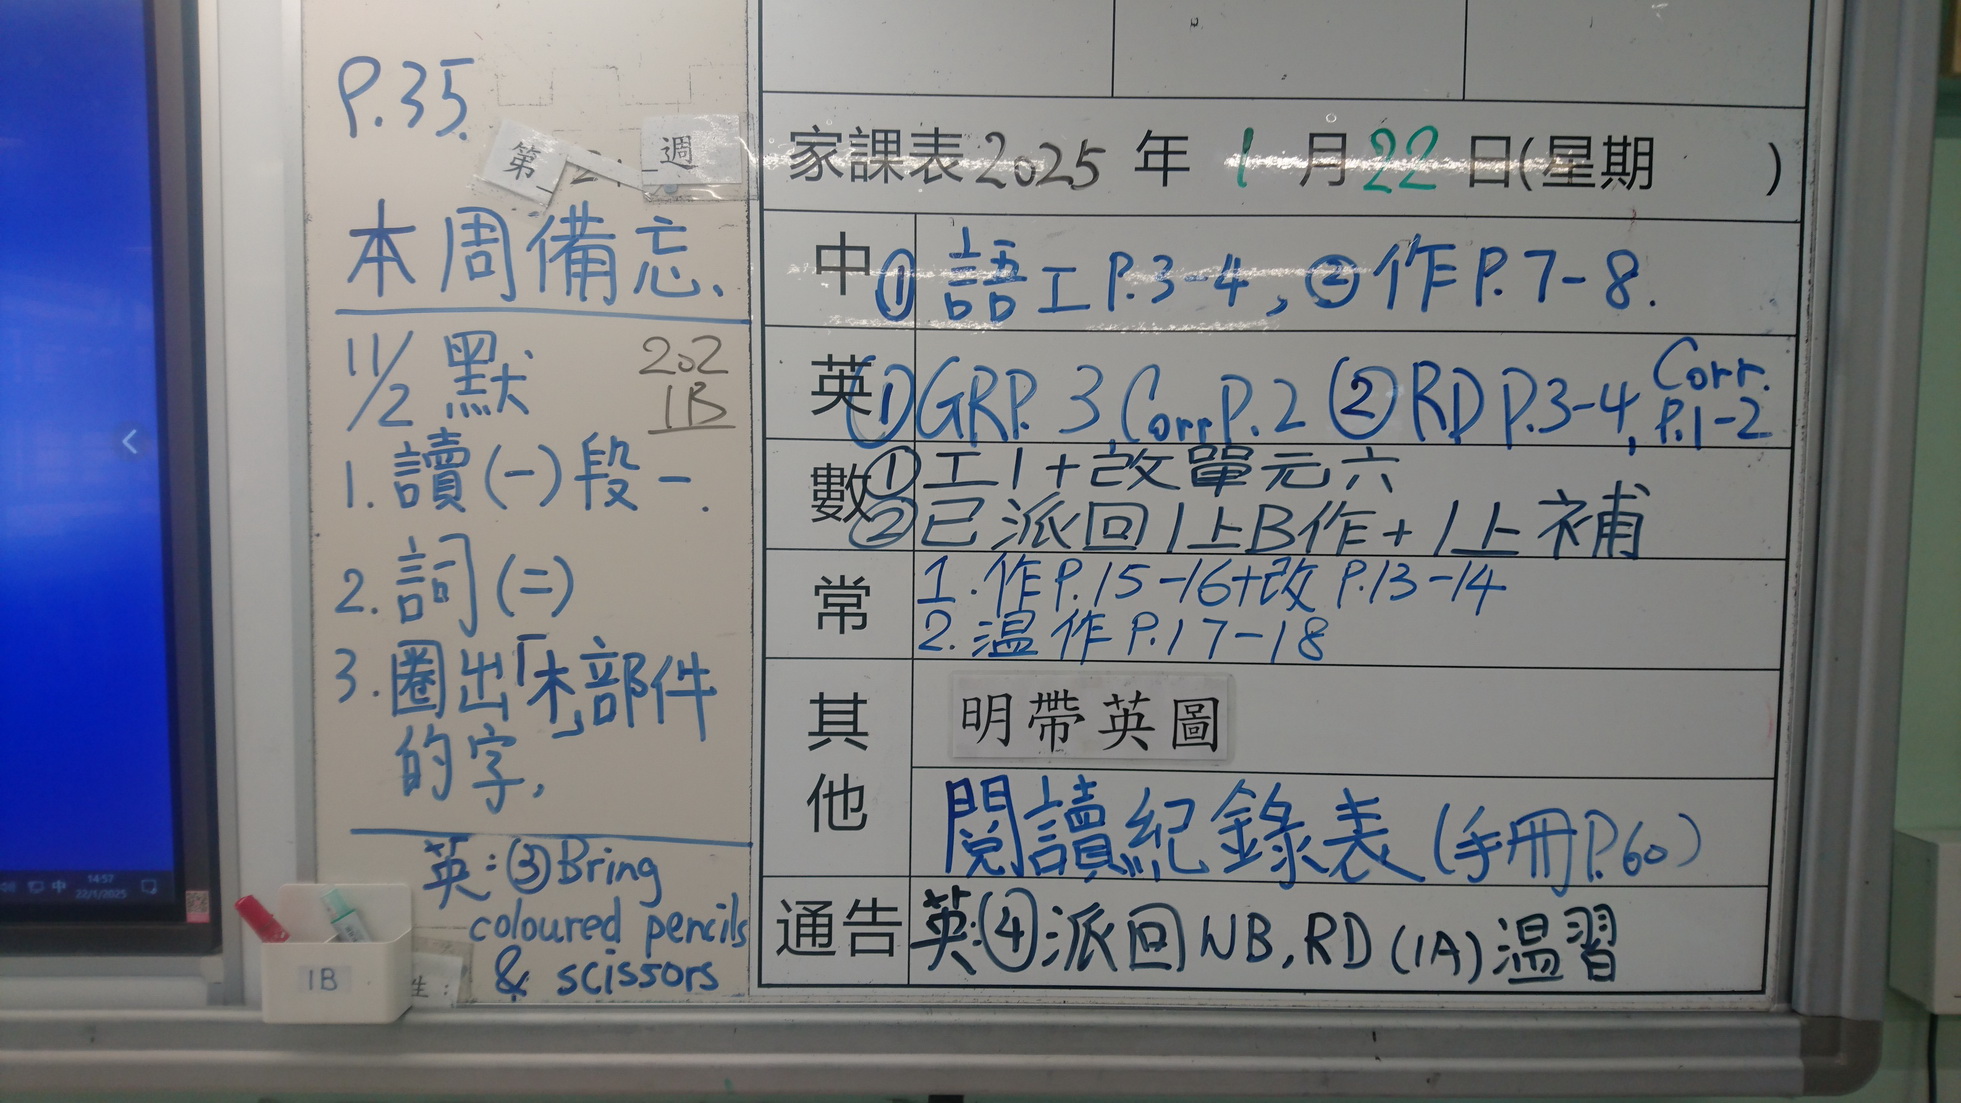 P.35.
第 週
本周備忘、
11/2 默
202
1B
1. 讀(一)段一.
2. 詞(二)
3. 圈出「木」部件
的字.
英:③Bring
coloured pencils
& scissors
家課表2025年1月22日(星期 )
中 ① 語工P.3-4, ②作P.7-8.
英 ①GRP.3, Corr P.2 ②RD P.3-4, Corr. P.1-2
數 ①工1+改單元六
②已派回1上B作+1上補
常 1.作P.15-16+改P.13-14
2.溫作P.17-18
其他 明帶英圖
閱讀紀錄表(手冊P.60)
通告 英:④派回NB,RD(1A)溫習
中 14:57
22/1/2025
1B
生: